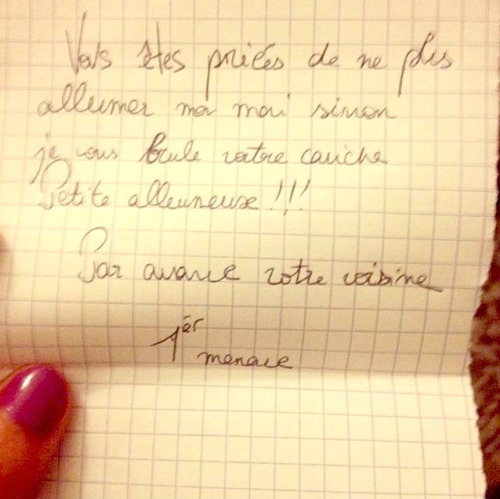 Vous êtes priées de ne plus
allumer mon mari sinon
je vous brule votre caniche
Petite allumeuse !!!
Par avance votre voisine
1èr menace